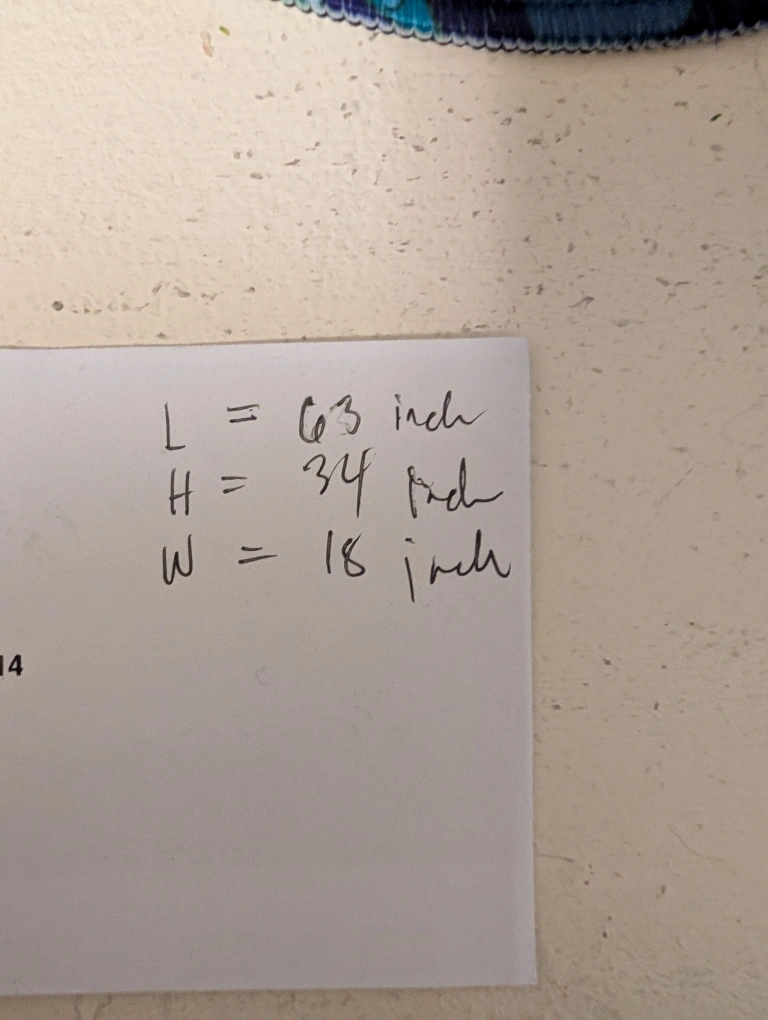 L = 63 inch
H = 34 inch
W = 18 inch
14